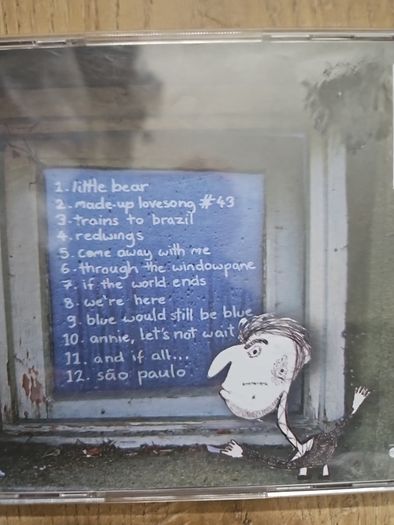 1. little bear
2. made-up lovesong #43
3. trains to brazil
4. redwings
5. come away with me
6. through the windowpane
7. if the world ends
8. we're here
9. blue would still be blue
10. annie, let's not wait
11. and if all...
12. são paulo